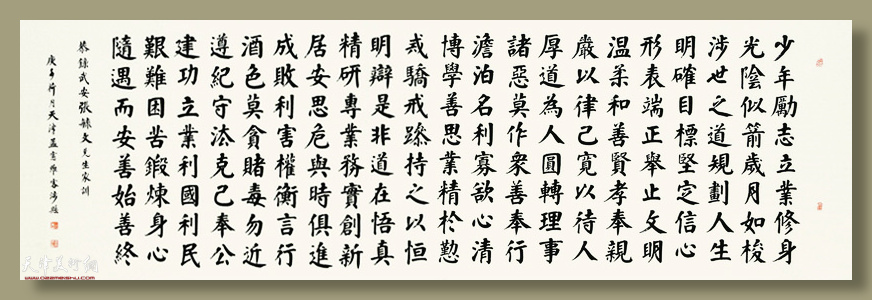 少年勵志立業修身
光陰似箭歲月如梭
涉世之道規劃人生
明確目標堅定信心
形表端正舉止文明
温柔和善賢孝奉親
嚴以律己寬以待人
厚道為人圓轉理事
諸惡莫作衆善奉行
澹泊名利寡欲心清
博學善思業精於勤
戒驕戒躁持之以恒
明辯是非道在悟真
精研專業務實創新
居安思危與時俱進
成敗利害權衡言行
酒色莫貪賭毒勿近
遵紀守法克己奉公
建功立業利國利民
艱難困苦鍛煉身心
隨遇而安善始善終
恭錄武安張 文先生家訓
庚子荷月天津孟
天津美術網